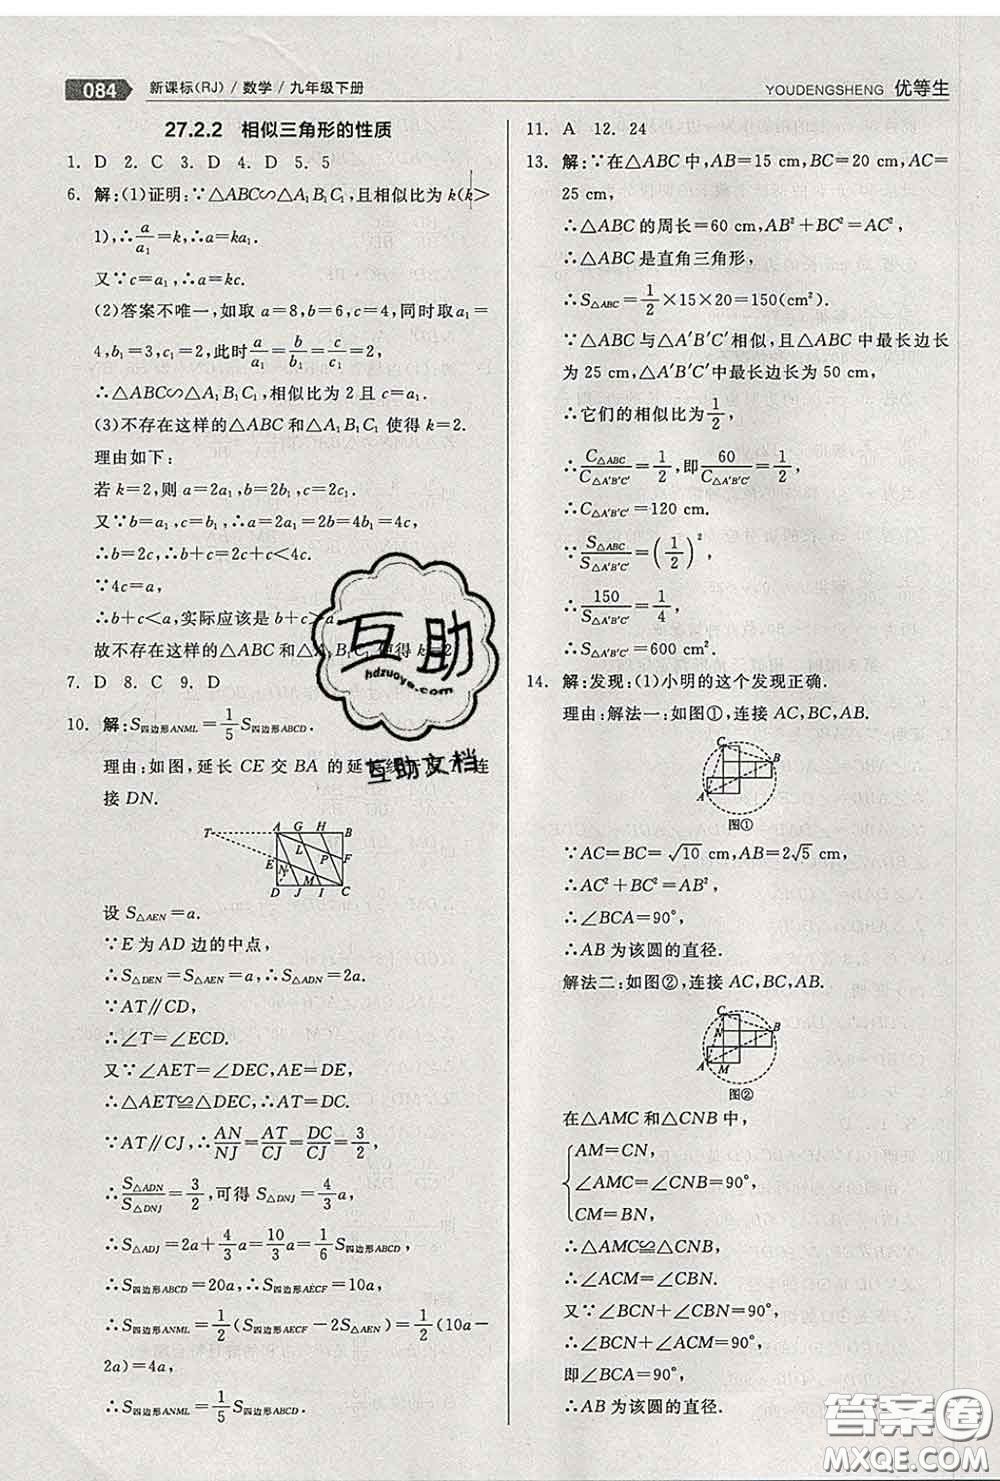 084 新课标(RJ) / 数学 / 九年级下册
YOUDENGSHENG 优等生
27.2.2 相似三角形的性质
1. D 2. C 3. D 4. D 5. 5
6. 解:(1)证明:∵△ABC∽△A₁B₁C₁,且相似比为 k(k>
1),∴a/a₁=k,∴a=ka₁.
又∵c=a₁,∴a=kc.
(2)答案不唯一,如取 a=8,b=6,c=4,同时取a₁=
4,b₁=3,c₁=2,此时a/a₁=b/b₁=c/c₁=2,
∴△ABC∽△A₁B₁C₁,相似比为 2 且 c=a₁.
(3)不存在这样的△ABC 和△A₁B₁C₁ 使得 k=2.
理由如下:
若 k=2,则 a=2a₁,b=2b₁,c=2c₁.
又∵b=a₁,c=b₁,∴a=2a₁=2b=4b₁=4c,
∴b=2c,∴b+c=2c+c<4c.
∵4c=a,
∴b+c<a,实际应该是 b+c>a
故不存在这样的△ABC 和△A₁B₁C₁ 使得 k=2.
7. D 8. C 9. D
10. 解:S四边形ANML=1/5 S四边形ABCD.
理由:如图,延长 CE 交 BA 的延长线于点 T,连
接 DN.
T A G H B
L E N P F
D J M I C
设 S△AEN=a.
∵E 为 AD 边的中点,
∴S△DEN=S△AEN=a,∴S△ADN=2a.
∵AT∥CD,
∴∠T=∠ECD.
又∵∠AET=∠DEC,AE=DE,
∴△AET≌△DEC,∴AT=DC.
∵AT∥CJ,∴AN/NJ=AT/CJ=DC/CJ=3/2,
∴S△ADN/S△DNJ=3/2,可得 S△DNJ=4/3 a,
∴S△ADJ=2a+4/3 a=1/6 S四边形ABCD,
∴S四边形ABCD=20a,∴S四边形AECF=10a,
∴S四边形ANML=1/2(S四边形AECF-2S△AEN)=1/2(10a-
2a)=4a,
∴S四边形ANML=1/5 S四边形ABCD.
11. A 12. 24
13. 解:∵在△ABC 中,AB=15 cm,BC=20 cm,AC=
25 cm,
∴△ABC 的周长=60 cm,AB²+BC²=AC²,
∴△ABC 是直角三角形,
∴S△ABC=1/2×15×20=150(cm²).
∵△ABC 与△A'B'C'相似,且△ABC 中最长边长
为 25 cm,△A'B'C'中最长边长为 50 cm,
∴它们的相似比为1/2,
∴C△ABC/C△A'B'C'=1/2,即60/C△A'B'C'=1/2,
∴C△A'B'C'=120 cm.
∵S△ABC/S△A'B'C'=(1/2)²,
∴150/S△A'B'C'=1/4,
∴S△A'B'C'=600 cm².
14. 解:发现:(1)小明的这个发现正确.
理由:解法一:如图①,连接 AC,BC,AB.
C B A
图①
∵AC=BC=√10 cm,AB=2√5 cm,
∴AC²+BC²=AB²,
∴∠BCA=90°,
∴AB 为该圆的直径.
解法二:如图②,连接 AC,BC,AB.
C N B A M
图②
在△AMC 和△CNB 中,
AM=CN,
∠AMC=∠CNB=90°,
CM=BN,
∴△AMC≌△CNB,
∴∠ACM=∠CBN.
又∵∠BCN+∠CBN=90°,
∴∠BCN+∠ACM=90°,
即∠BCA=90°,
∴AB 为该圆的直径.
互助
hdzuoye.com
互助文档
答案圈
MXQE.COM